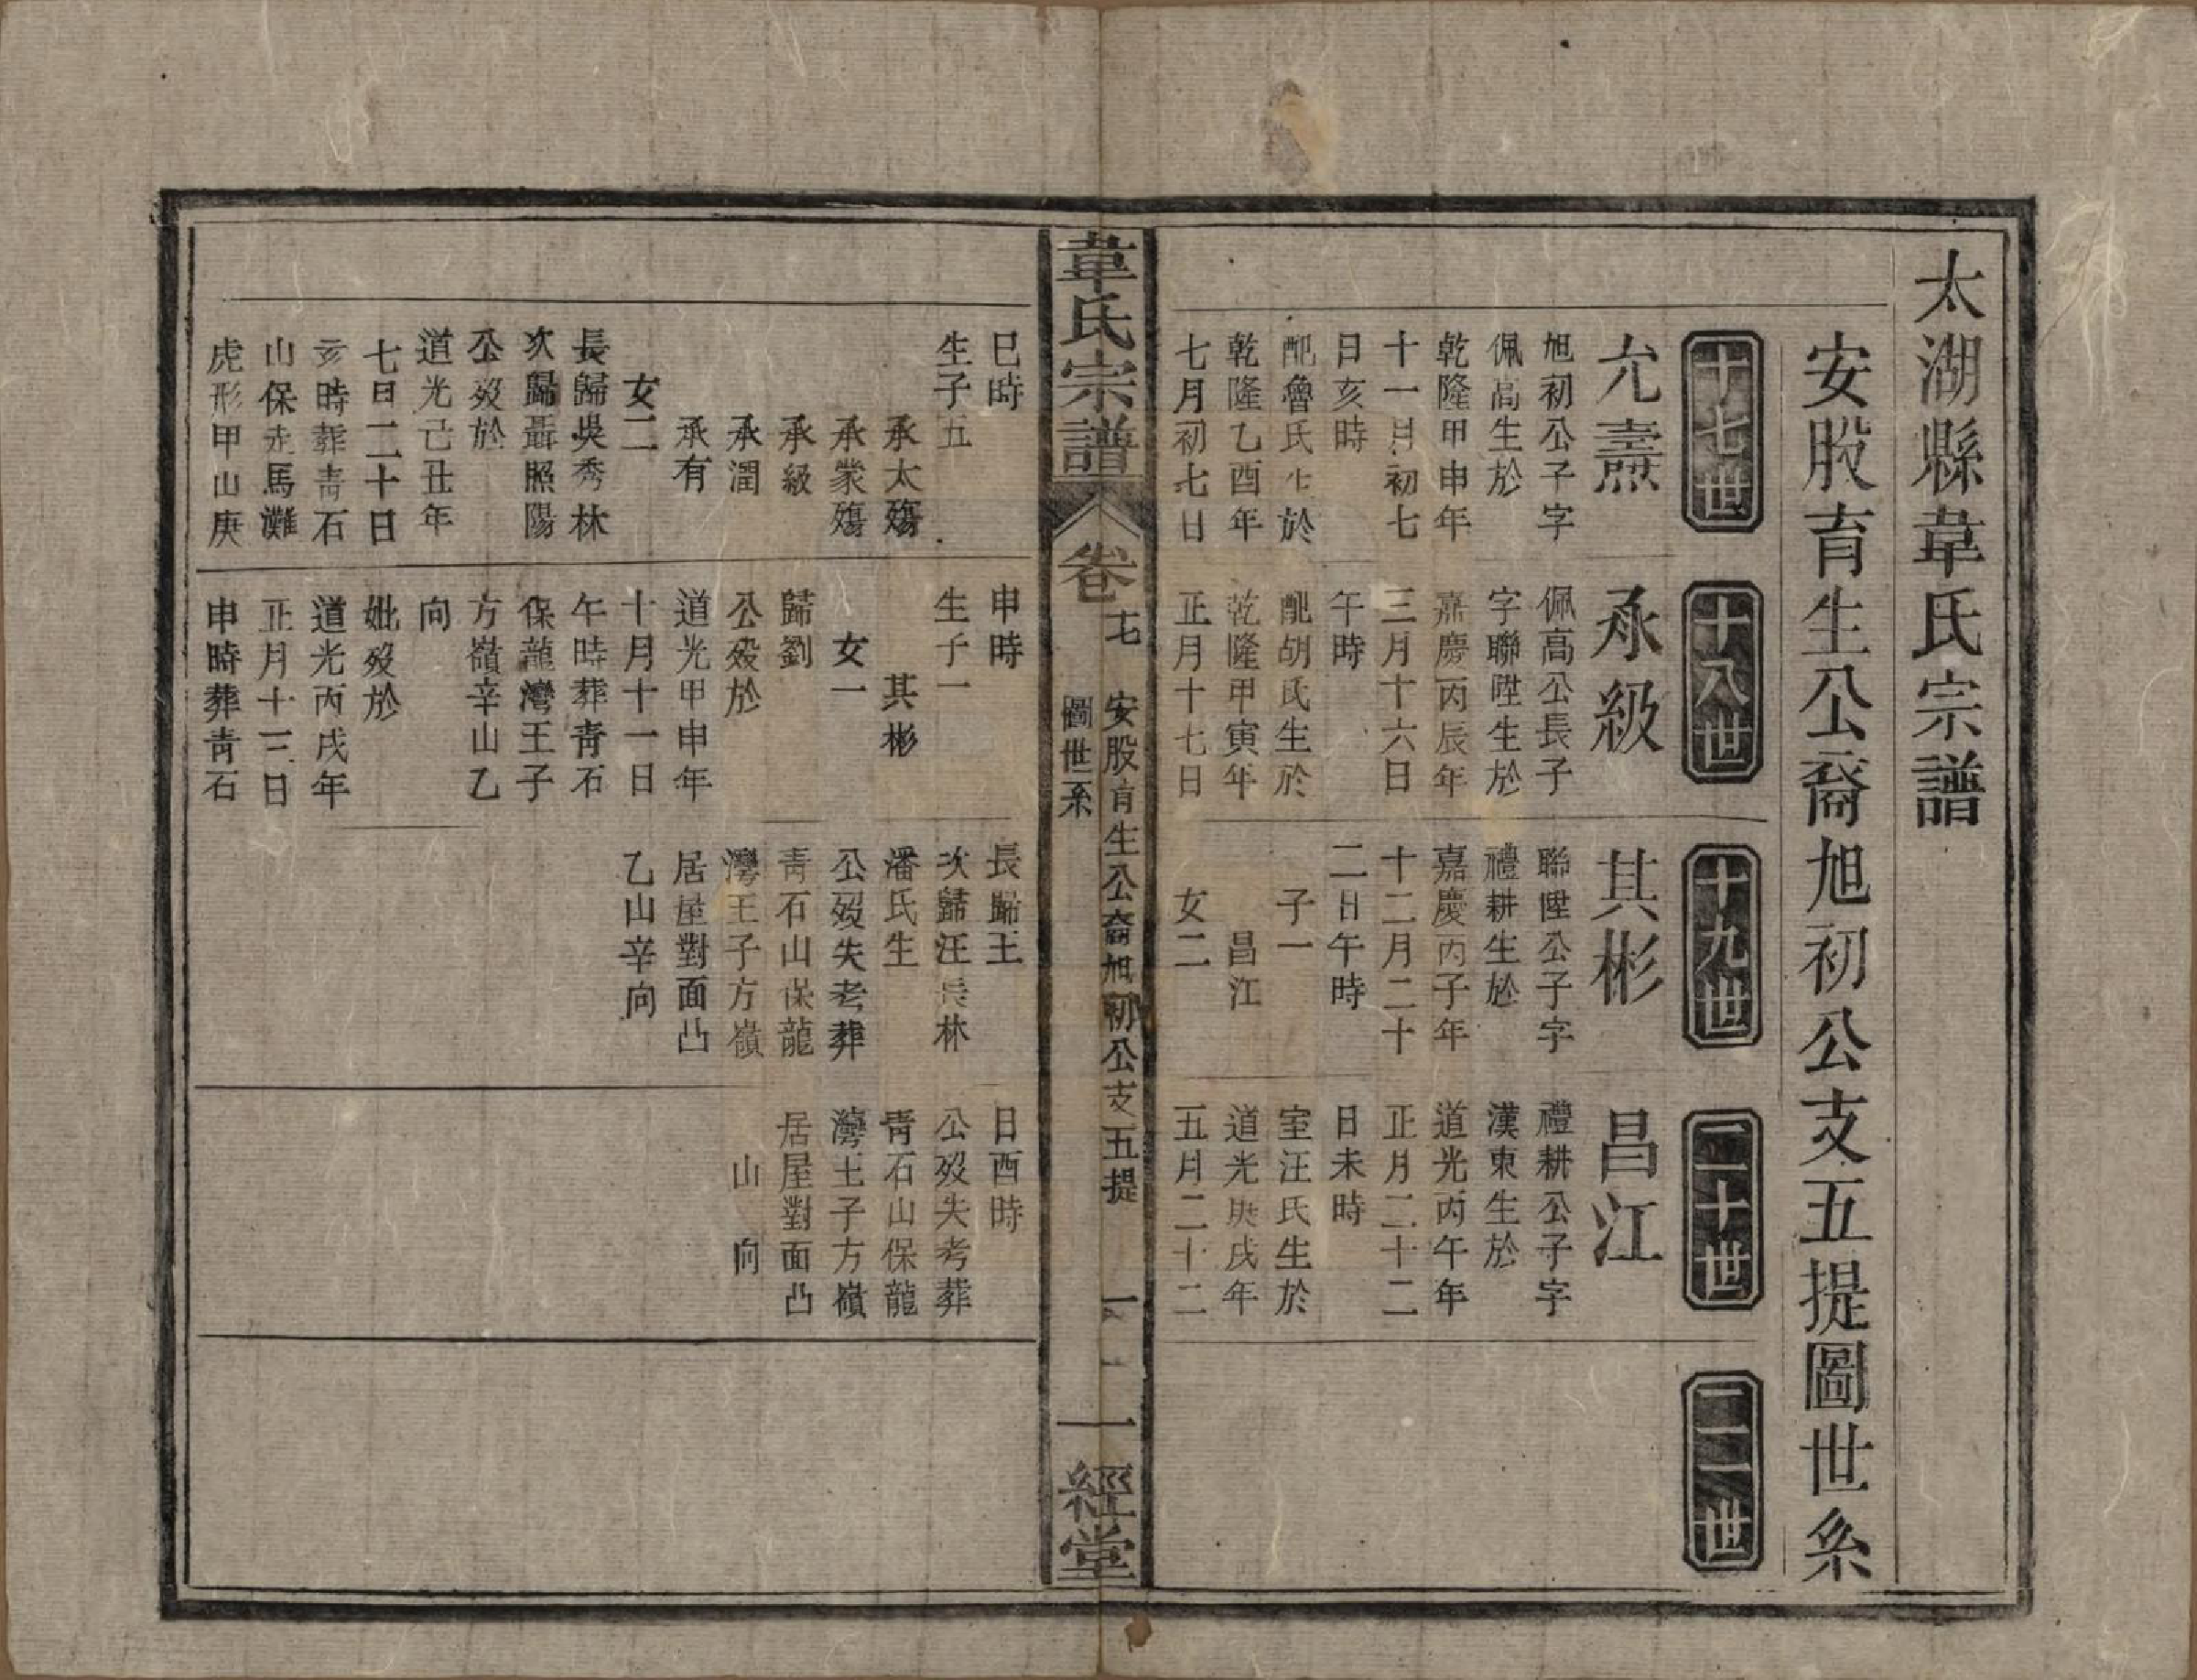 太湖縣韋氏宗譜
安股育生公裔旭初公支五提圖世系
十七世
允燾
旭初公子字
佩高生於
乾隆甲申年
十一月初七
日亥時
配魯氏生於
乾隆乙酉年
七月初七日
十八世
承級
佩高公長子
字聯陞生於
嘉慶丙辰年
三月十六日
午時
配胡氏生於
乾隆甲寅年
正月十七日
十九世
其彬
聯陞公子字
禮耕生於
嘉慶丙子年
十二月二十
二日午時
子一
昌江
女二
二十世
昌江
禮耕公子字
漢東生於
道光丙午年
正月二十二
日未時
室汪氏生於
道光庚戌年
五月二十二
二一世
韋氏宗譜
卷
十七
安股育生公裔旭初公支五提
圖世系
一
一經堂
巳時
生子五
承太殤
承業殤
承級
承潤
承有
女二
長歸吳秀林
次歸聶照陽
公歿於
道光己丑年
七月二十日
亥時葬青石
山保走馬灘
虎形甲山庚
申時
生子一
其彬
女一
歸劉
公歿於
道光甲申年
十月十一日
午時葬青石
保龍灣王子
方嶺辛山乙
向
妣歿於
道光丙戌年
正月十三日
申時葬青石
長歸王
次歸汪長林
潘氏生
公歿失考葬
青石山保龍
灣王子方嶺
居屋對面凸
乙山辛向
日酉時
公歿失考葬
青石山保龍
灣王子方嶺
居屋對面凸
山　向